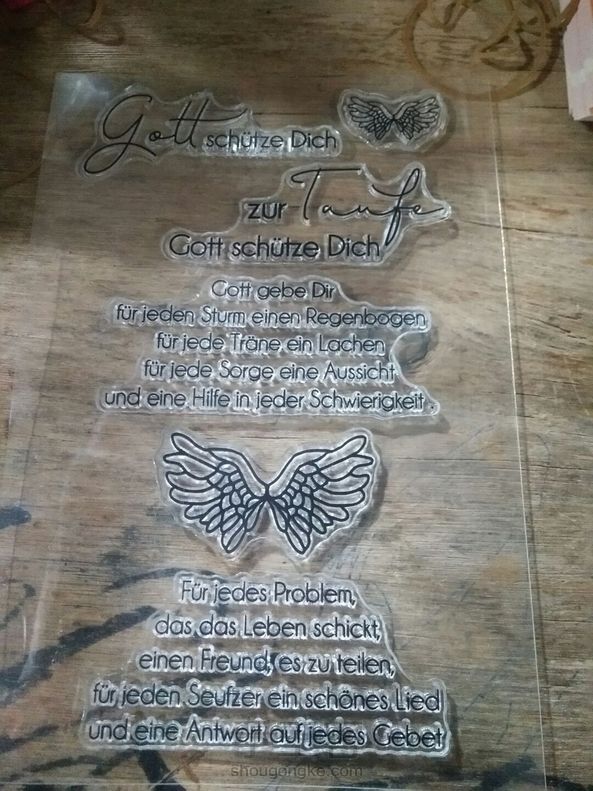 Gott schütze Dich
zur Taufe
Gott schütze Dich
Gott gebe Dir
für jeden Sturm einen Regenbogen
für jede Träne ein Lachen
für jede Sorge eine Aussicht
und eine Hilfe in jeder Schwierigkeit.
Für jedes Problem,
das das Leben schickt,
einen Freund, es zu teilen,
für jeden Seufzer ein schönes Lied
und eine Antwort auf jedes Gebet
shougongke.com